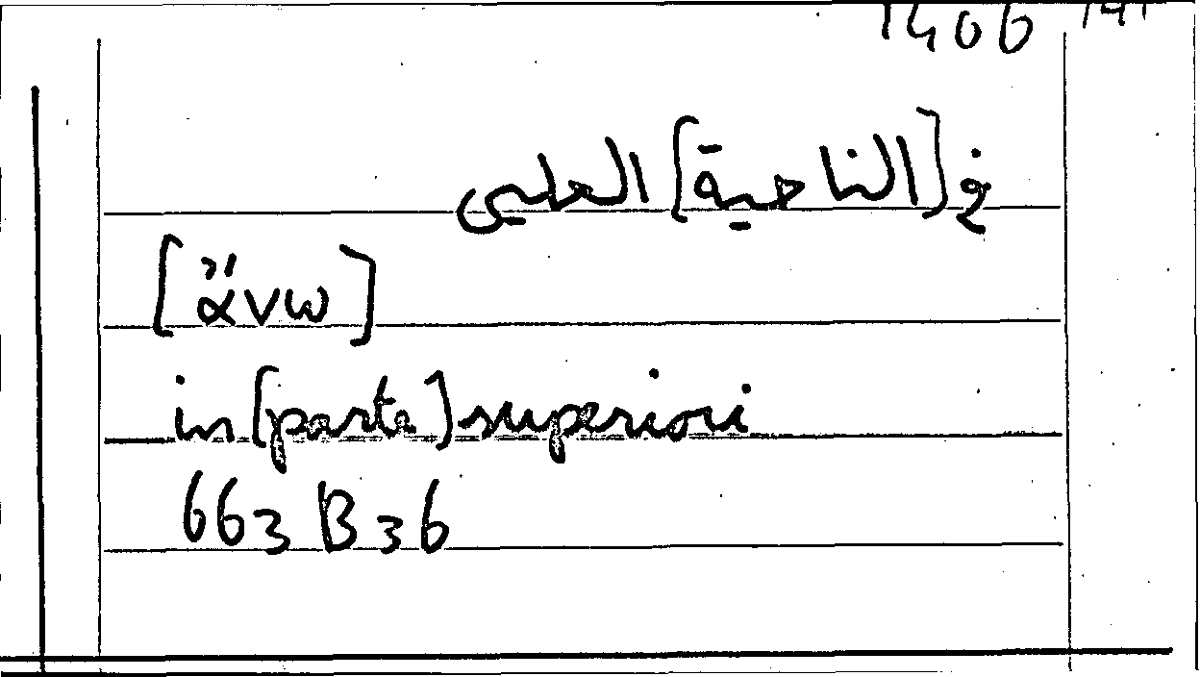 1406
فى [الناحية] العليى
[ἄνω]
in [parte] superiori
663 B 36